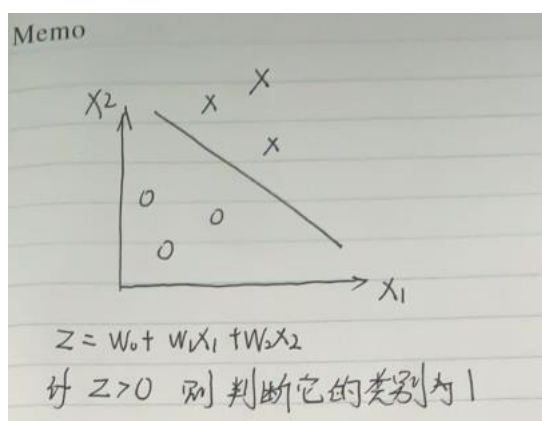 Memo
X2
X X
X
O
O
O
X1
Z = W0 + W1X1 + W2X2
Z>0 则判断它的类别为1